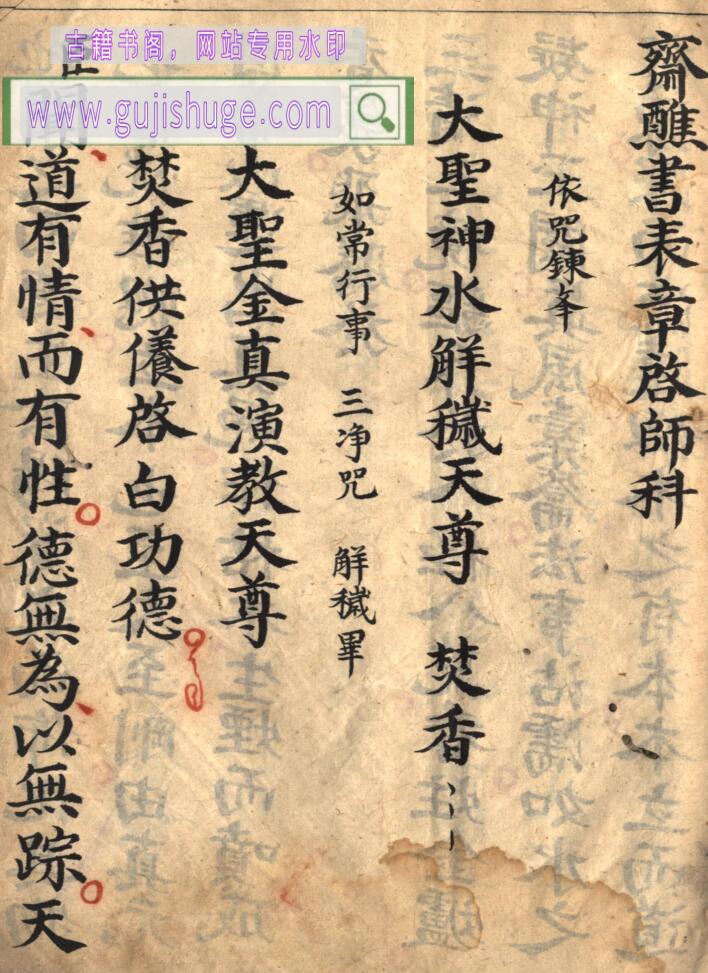 古籍书阁，网站专用水印
www.gujishuge.com
齋醮書表章啓師科
依咒鍊峯
大聖神水解穢天尊　焚香
如常行事　三净咒　解穢畢
大聖金真演教天尊
焚香供儀啓白功德
聞道有情而有性德無為以無踪天